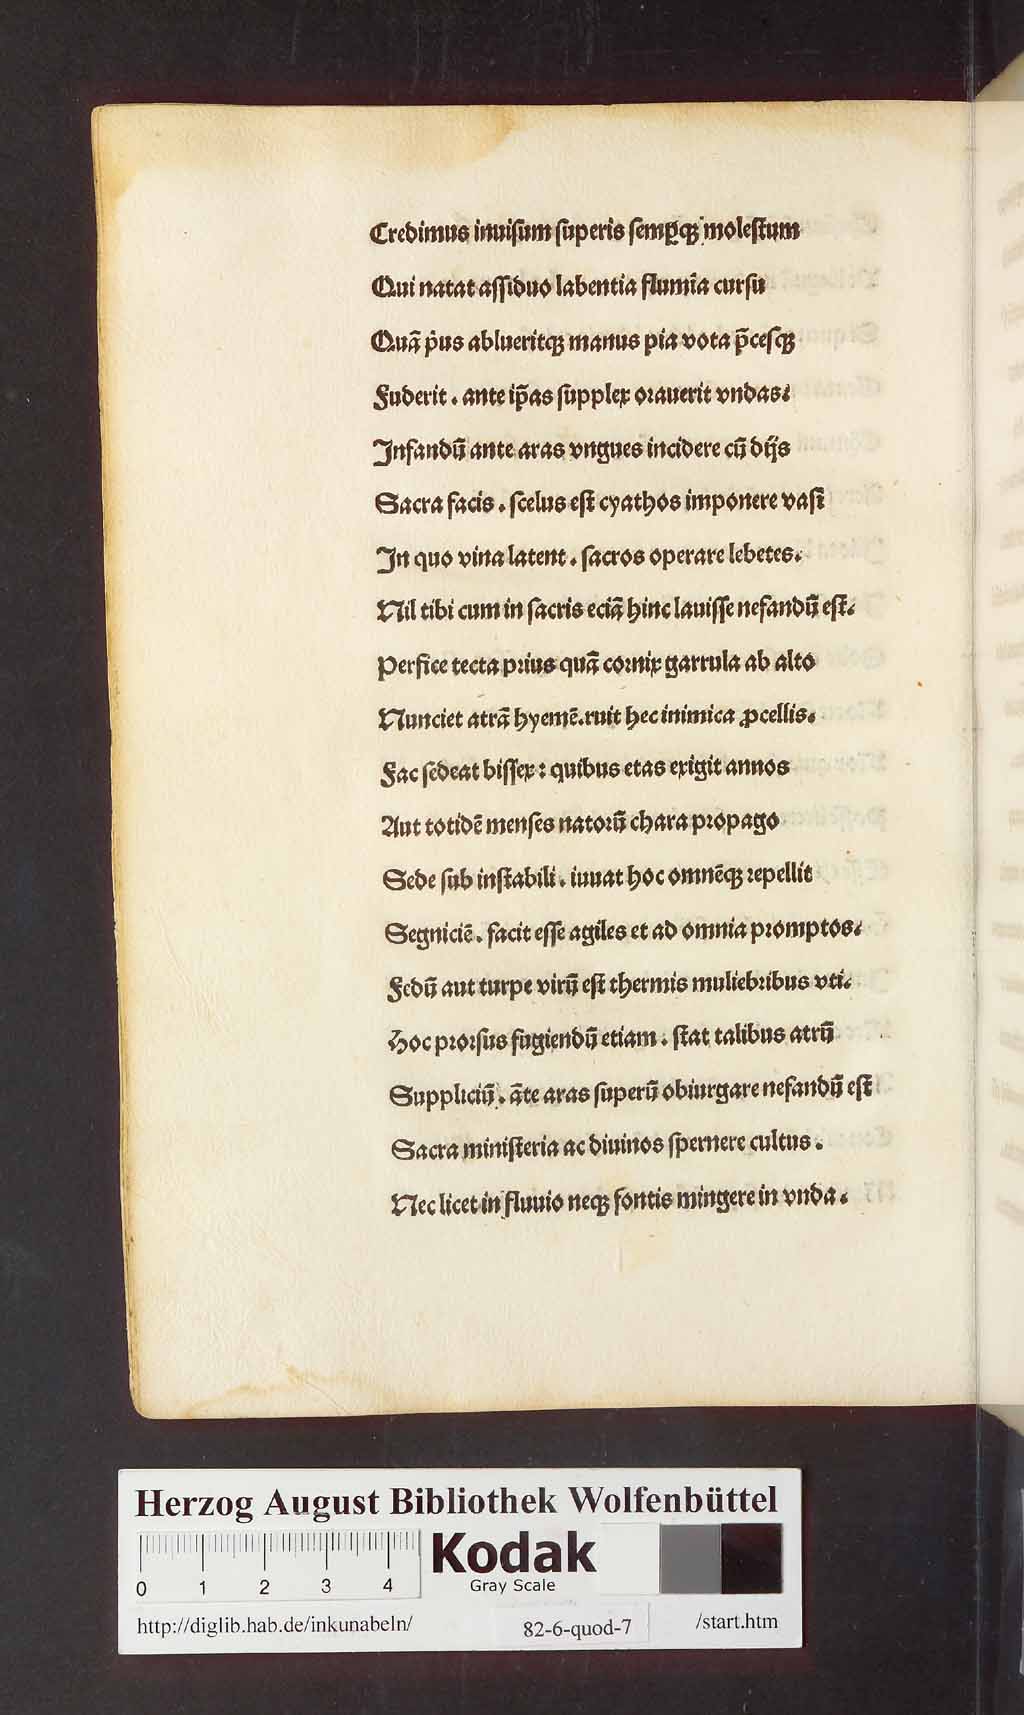 Credimus inuiſum ſuperis ſemꝑqꝫ moleſtum
Qui natat aſſiduo labentia flumīa curſu
Quā pͥus ablueritqꝫ manus pia vota p̄ceſqꝫ
Fuderit . ante ip̄as ſupplex oꝛauerit vndas.
Infandū ante aras vngues incidere cū dijs
Sacra facis . ſcelus eſt cyathos imponere vaſī
In quo vina latent . ſacros operare lebetes.
Nil tibi cum in ſacris eciā hinc lauiſſe nefandū eſt.
Perfice tecta pꝛius quā coꝛnix garrula ab alto
Nunciet atrā hyemē.ruit hec inimica ꝓcellis.
Fac ſedeat biſſex : quibus etas exigit annos
Aut totidē menſes natoꝛū chara pꝛopago
Sede ſub inſtabili . iuuat hoc omnēqꝫ repellit
Segniciē . facit eſſe agiles et ad omnia pꝛomptos.
Fedū aut turpe virū eſt thermis muliebꝛibus vti.
Hoc pꝛoꝛſus fugiendū etiam . ſtat talibus atrū
Suppliciū . āte aras ſuperū obiurgare nefandū eſt
Sacra miniſteria ac diuinos ſpernere cultus .
Nec licet in fluuio neqꝫ fontis mingere in vnda .
Herzog August Bibliothek Wolfenbüttel
0 1 2 3 4
Kodak
Gray Scale
http://diglib.hab.de/inkunabeln/ 82-6-quod-7 /start.htm